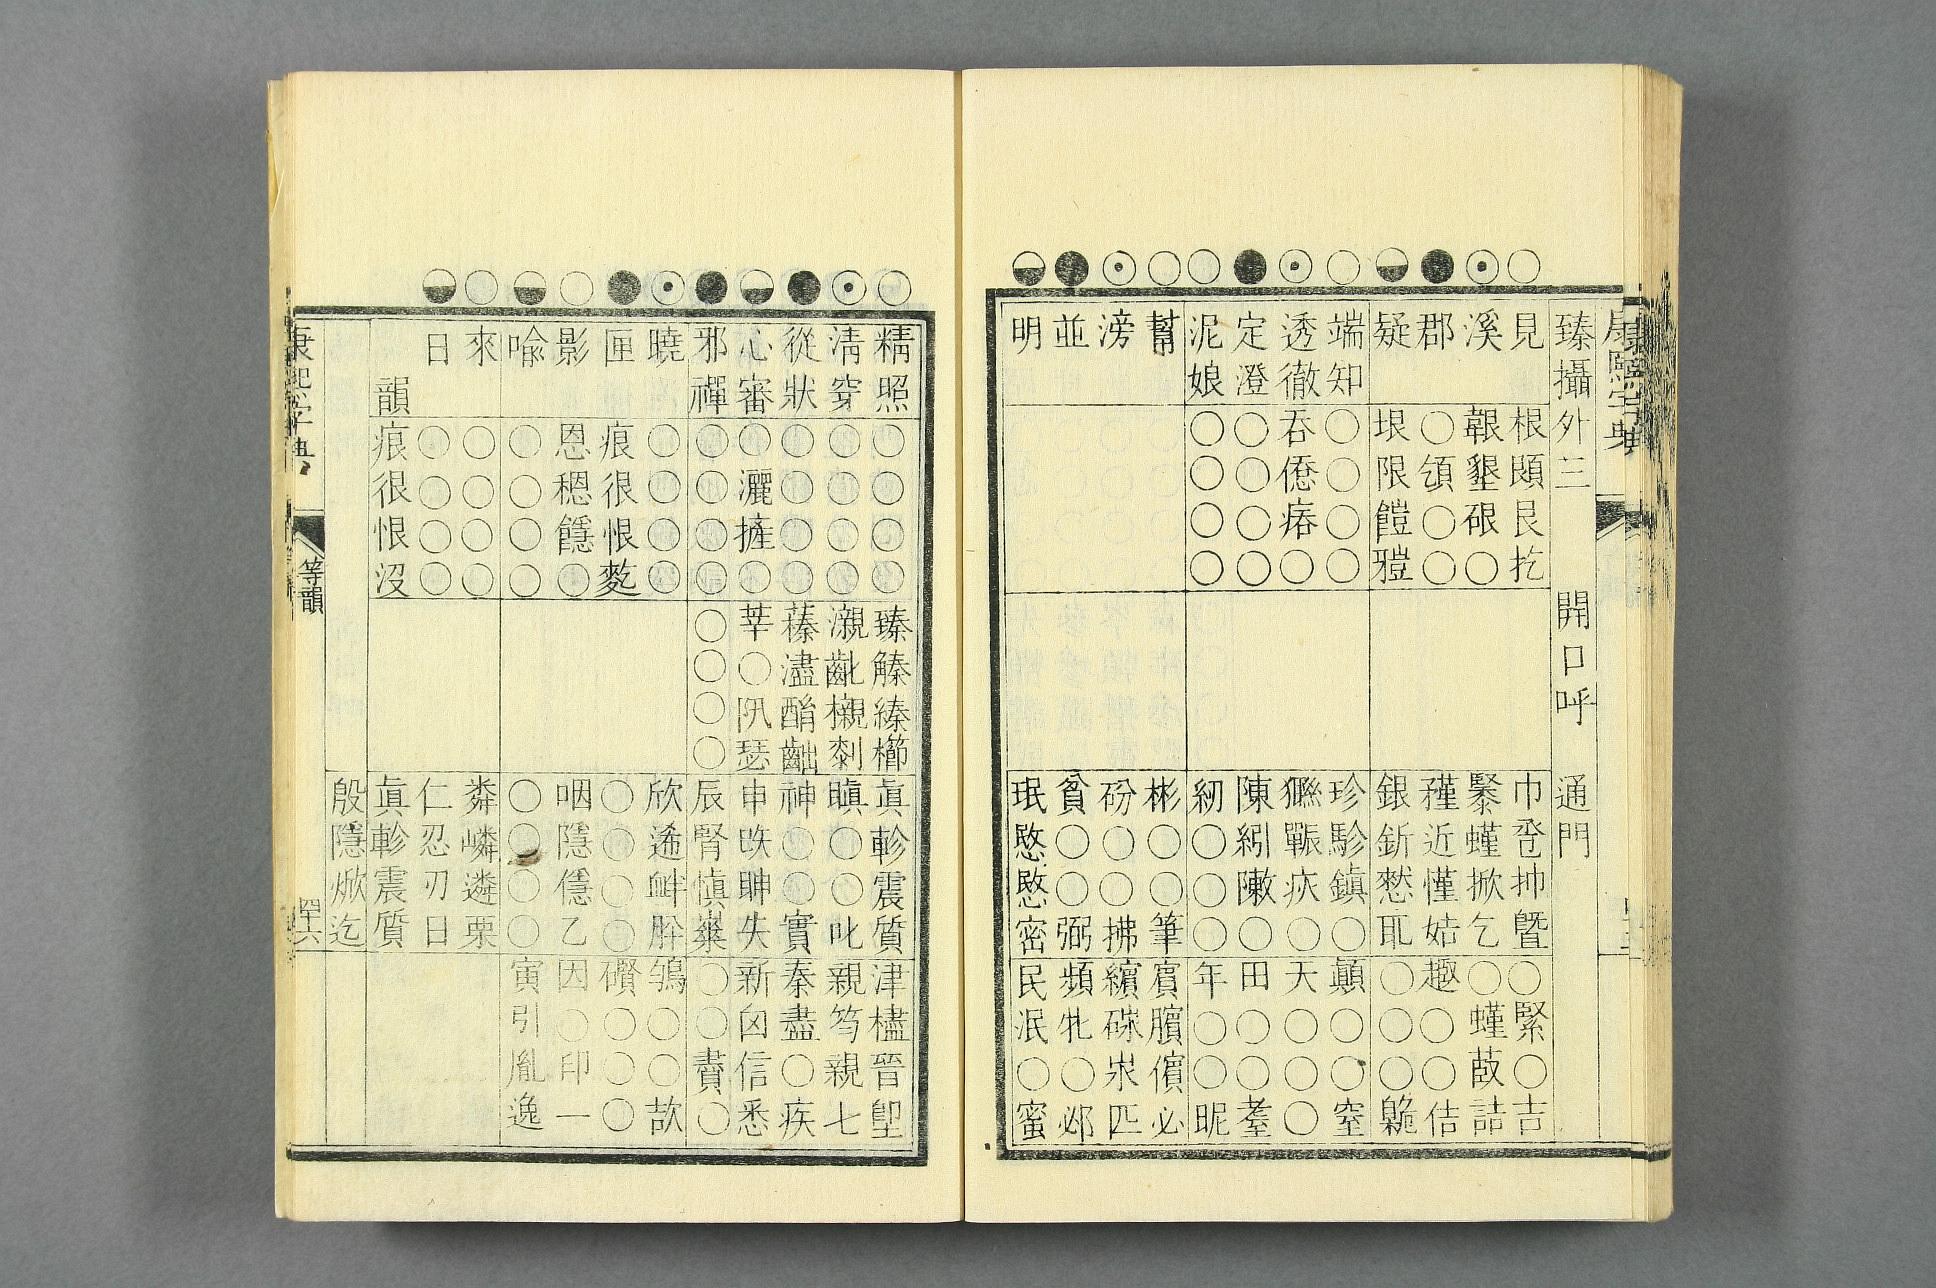 康熙字典
臻攝外三 開口呼 通門
見 根頣艮扢 巾巹 暨 ○緊○吉
溪 墾硍○ 螼掀乞 ○螼菣詰
郡 ○頎○○ 近慬姞 趣○○佶
疑 垠限 銀釿憖耴 ○○○臲
端知 ○○○○ 珍駗鎮○ 顛○○窒
透徹 吞 ○ 囅疢○ 天○○○
定澄 ○○○○ 陳紖敶○ 田○○耋
泥娘 ○○○○ 紉○○○ 年○○昵
幫 彬○○筆 賓臏儐必
滂 砏○○拂 繽 匹
並 貧○○弼 頻牝○邲
明 珉愍愍密 民泯○蜜
精照 ○○○○ 臻 櫛 眞軫震質 津榼晉堲
清穿 ○○○○ 瀙齔櫬 瞋○○叱 親笉親七
從狀 ○○○○ 榛濜 齜 神○○實 秦盡○疾
心審 ○ ○ 莘○阠瑟 申 失 新囟信悉
邪禪 ○○○○ ○○○○ 辰腎慎 ○○賮○
曉 ○○○○ 欣 衅肸 ○○
匣 痕很恨麧 ○○○○ 礥○○○
影 恩穩 ○ 咽隱 乙 因○印一
喩 ○○○○ ○○○○ 寅引胤逸
來 ○○○○ 粦嶙遴栗
日 ○○○○ 仁忍刃日
韻 痕很恨沒 眞軫震質
殷隱焮迄
康熙字典 等韻 四十六